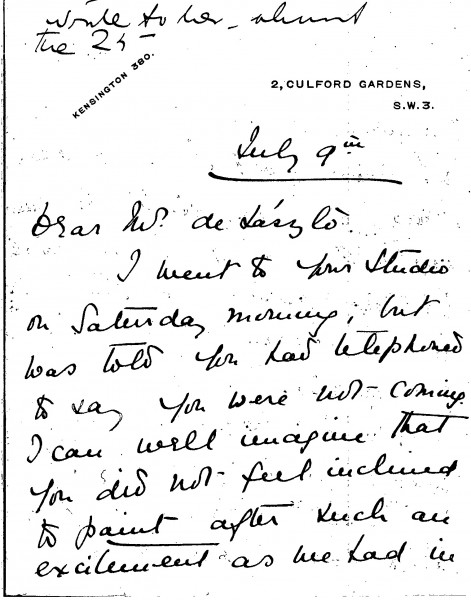 write to her - about
the 25 -
KENSINGTON 380.
2, CULFORD GARDENS,
S.W.3.
July 9th
Dear Mr. de László.
I went to your studio
on Saturday morning, but
was told you had telephoned
to say you were not coming.
I can well imagine that
you did not feel inclined
to paint after such an
excitement as we had in